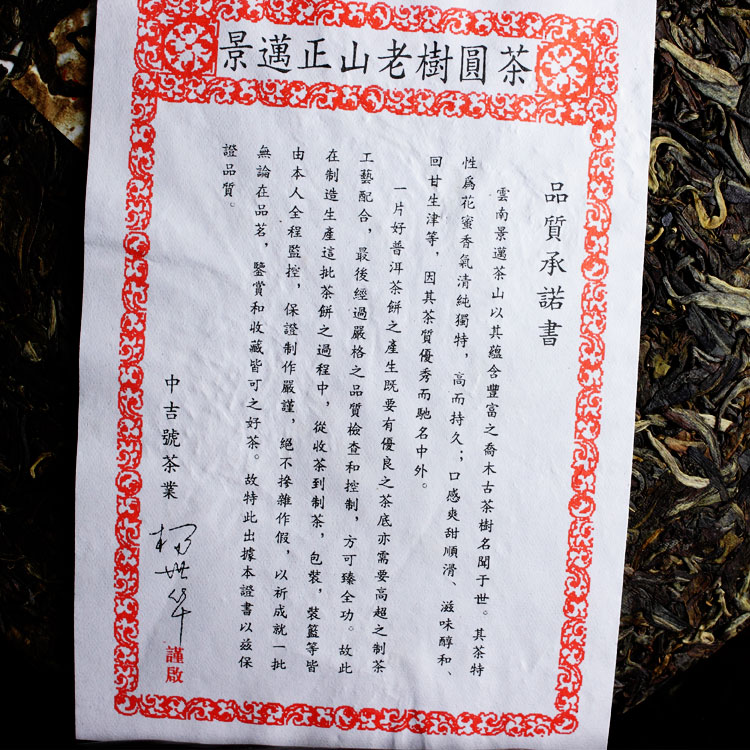 景邁正山老樹圓茶
品質承諾書
雲南景邁茶山以其蘊含豐富之喬木古茶樹名聞于世。其茶特
性爲花蜜香氣清純獨特，高而持久；口感爽甜順滑、滋味醇和、
回甘生津等，因其茶質優秀而馳名中外。
一片好普洱茶餅之產生既要有優良之茶底亦需要高超之制茶
工藝配合，最後經過嚴格之品質檢查和控制，方可臻全功。故此
在制造生產這批茶餅之過程中，從收茶到制茶，包裝，裝籃等皆
由本人全程監控，保證制作嚴謹，絕不摻雜作假，以祈成就一批
無論在品茗，鑒賞和收藏皆可之好茶。故特此出據本證書以兹保
證品質。
中吉號茶業
楊世華
謹啟